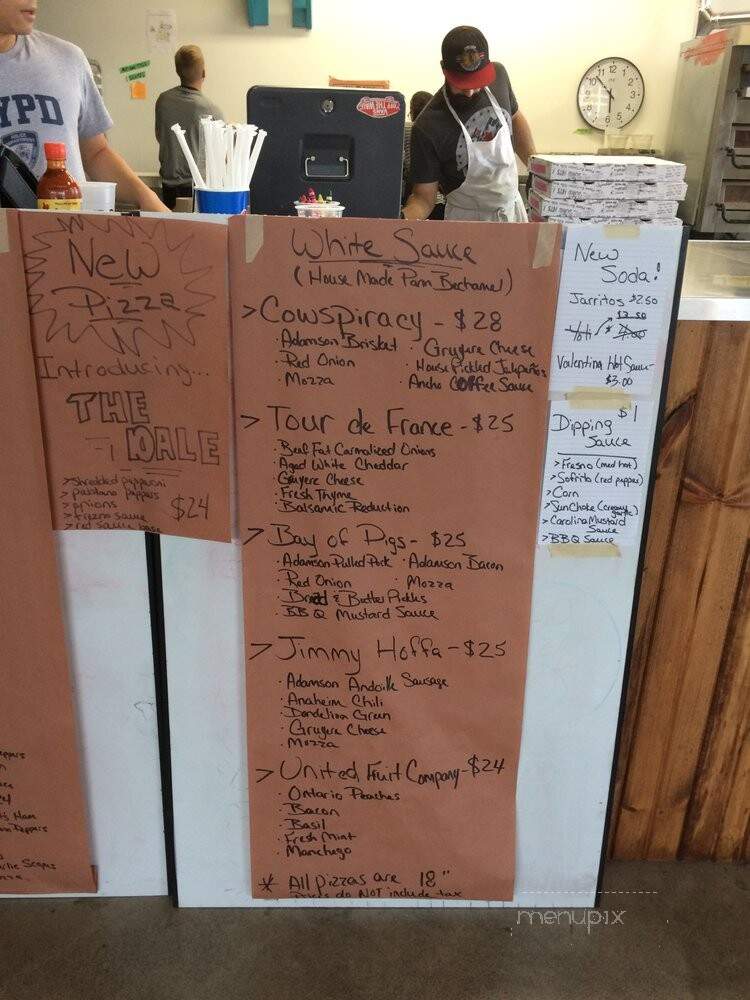 NYPD
New
Pizza
Introducing...
THE
DALE
> Shredded pepperoni
> poblano peppers
> onions
> fresno sauce
> red sauce base
$24
White Sauce
(House Made Parm Bechamel)
> Cowspiracy - $28
· Adamson Brisket · Gruyere Cheese
· Red Onion · House Pickled Jalapeños
· Mozza · Ancho Coffee Sauce
> Tour de France - $25
· Beef Fat Carmalized Onions
· Aged White Cheddar
· Gruyere Cheese
· Fresh Thyme
· Balsamic Reduction
> Bay of Pigs - $25
· Adamson Pulled Pork · Adamson Bacon
· Red Onion · Mozza
· Bread & Butter Pickles
· BBQ Mustard Sauce
> Jimmy Hoffa - $25
· Adamson Andoille Sausage
· Anaheim Chili
· Dandelion Green
· Gruyere Cheese
· Mozza
> United Fruit Company - $24
· Ontario Peaches
· Bacon
· Basil
· Fresh Mint
· Manchego
* All pizzas are 18"
Prices do NOT include tax
New
Soda!
Jarritos $2.50
$3.50
Valentina Hot Sauce
$3.00
Dipping $1
Sauce
> Fresno (med hot)
> Sofrito (red pepper)
> Corn
> SunChoke (creamy garlic)
> Carolina Mustard
Sauce
> BBQ Sauce
menupix